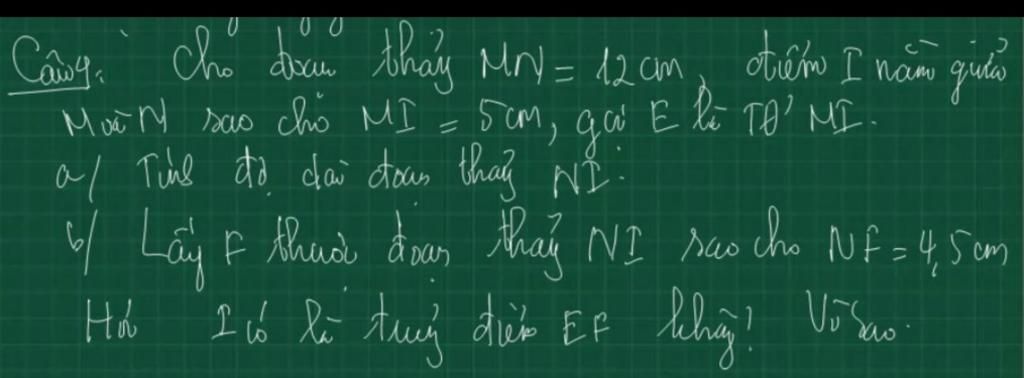 Câu 4: Cho đoạn thẳng MN = 12 cm, điểm I nằm giữa
M và N sao cho MI = 5cm, gọi E là TĐ' MI.
a/ Tính độ dài đoạn thẳng NI.
b/ Lấy F thuộc đoạn thẳng NI sao cho NF = 4,5cm
Hỏi I có là trung điểm EF không? Vì sao.